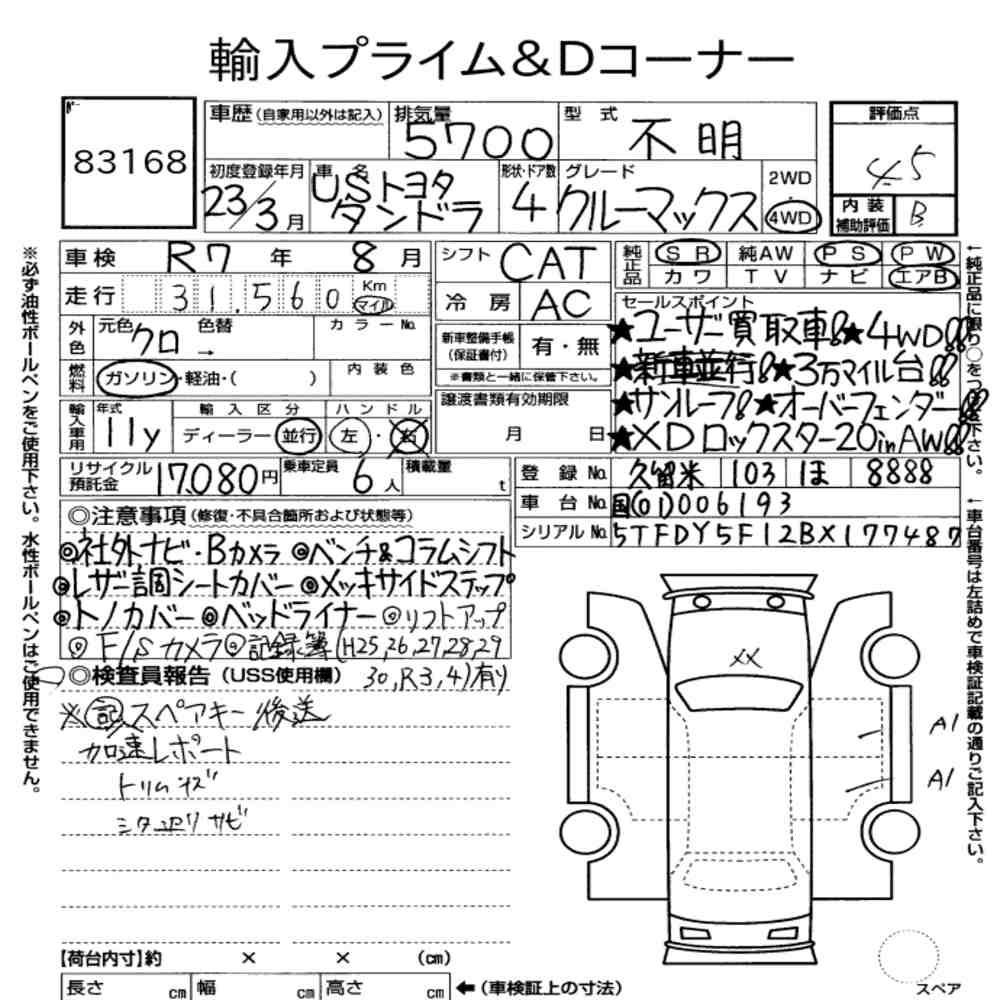 輸入プライム&Dコーナー
83168
車歴(自家用以外は記入) 排気量 5700 型式 不明 評価点 4.5
初度登録年月 23/3月 車名 USトヨタ タンドラ 形状・ドア数 4 グレード クルーマックス 2WD・4WD 内装補助評価 B
車検 R7年 8月 シフト CAT 純正品 SR 純AW PS PW
カワ TV ナビ エアB
走行 31,560 Km マイル 冷房 AC セールスポイント
★ユーザー買取車!!★4WD!!
外色 元色 クロ 色替 → カラーNo. 新車整備手帳(保証書付) 有・無
★新車並行!!★3万マイル台!!
燃料 ガソリン・軽油・( ) 内装色 ※書類と一緒に保管下さい。
★サンルーフ!!★オーバーフェンダー!!
輸入車用 年式 11y 輸入区分 ディーラー 並行 ハンドル 左・右 譲渡書類有効期限 月 日
★XDロックスター20inAW!!
リサイクル預託金 17,080円 乗車定員 6人 積載量 t 登録No. 久留米 103 ほ 8888
車台No. 国(01)006193
シリアルNo. 5TFDY5F12BX177487
◎注意事項(修復・不具合箇所および状態等)
◎社外ナビ・Bカメラ ◎ベンチ&コラムシフト
◎レザー調シートカバー ◎メッキサイドステップ
◎トノカバー ◎ベッドライナー ◎リフトアップ
◎F/Sカメラ ◎記録簿(H25,26,27,28,29
30,R3,4)有り
◎検査員報告(USS使用欄)
※記 スペアキー後送
加速レポート
トリムキズ
シタ廻りサビ
XX
A1
A1
【荷台内寸】約 × × (cm)
長さ cm 幅 cm 高さ cm ←(車検証上の寸法)
スペア
※必ず油性ボールペンをご使用下さい。水性ボールペンはご使用できません。
←純正品に限り○をつけて下さい。
←車台番号は左詰めで車検証記載の通りご記入下さい。